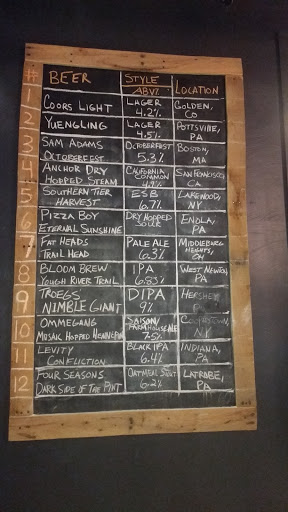 # BEER STYLE ABV% LOCATION
1 COORS LIGHT LAGER 4.2% GOLDEN, CO
2 YUENGLING LAGER 4.5% POTTSVILLE, PA
3 SAM ADAMS OCTOBERFEST OCTOBERFEST 5.3% BOSTON, MA
4 ANCHOR DRY HOPPED STEAM CALIFORNIA COMMON 4.9% SAN FRANCISCO CA
5 SOUTHERN TIER HARVEST ESB 6.7% LAKEWOOD, NY
6 PIZZA BOY ETERNAL SUNSHINE DRY HOPPED SOUR ENOLA, PA
7 FAT HEADS TRAIL HEAD PALE ALE 6.3% MIDDLEBURG HEIGHTS, OH
8 BLOOM BREW YOUGH RIVER TRAIL IPA 6.83% WEST NEWTON, PA
9 TROEGS NIMBLE GIANT DIPA 9% HERSHEY PA
10 OMMEGANG MOSAIC HOPPED HENNEPIN SAISON/ FARMHOUSE ALE 7.5% COOPERSTOWN, NY
11 LEVITY CONFLICTION BLACK IPA 6.4% INDIANA, PA
12 FOUR SEASONS DARK SIDE OF THE PINT OATMEAL STOUT 6.2% LATROBE, PA